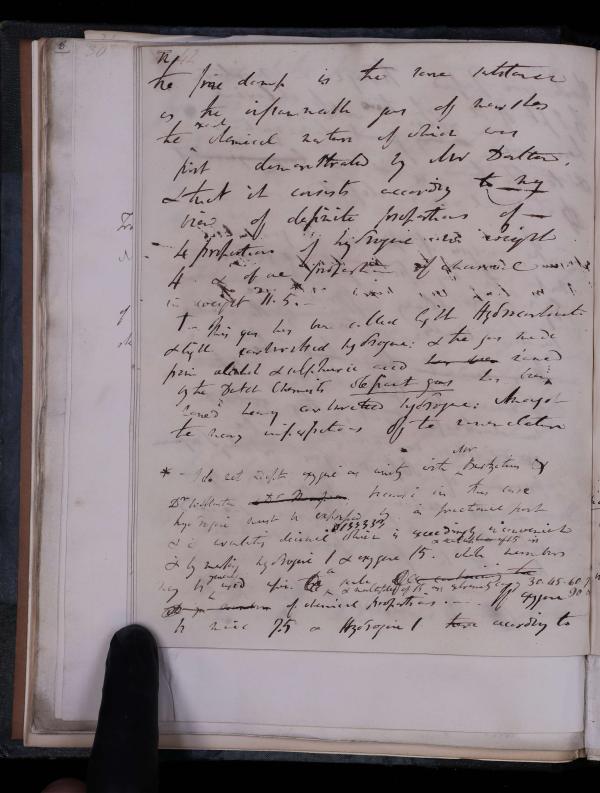 12
the fire damp is the same substance
as the inflammable gas of marshes
the chemical nature of which was
first demonstrated by Mr Dalton.
& that it consists according to my
view of definite proportions of
4 proportions of hydrogene in weight
4 & of one proportion of charcoal
in weight 11.5.
+ This gas has been called light Hydrocarbonate
& light carburetted hydrogene: & the gas made
from alcohol & sulphuric acid has been named
by the Dutch Chemists olefiant gas has been
named heavy carburetted hydrogene: Amongst
the many imperfections of the nomenclature
* I do not adopt oxygene as unity with Mr Berzelius &
Dr Wollaston because in this case
hydrogene must be expressed by a fractional part
.0133333
& is a decimal which is exceedingly inconvenient
& by making hydrogene 1 & oxygene 15. whole numbers
may be used & multiples of 15 30. 45. 60
90
of chemical proportions. If oxygene
is made 7.5 & Hydrogene 1 according to